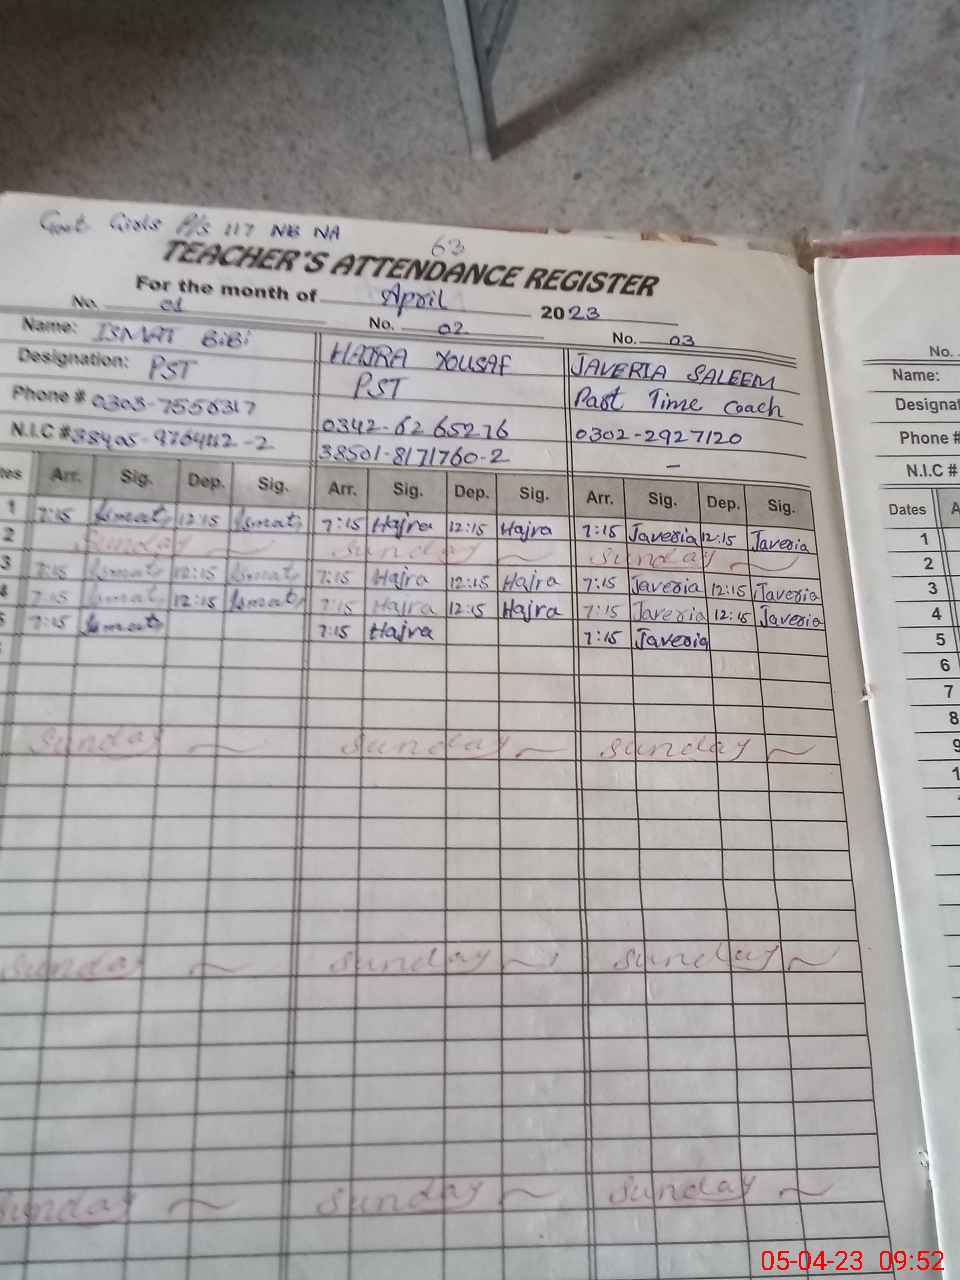 Govt. Girls P/S 117 NB NA
63
TEACHER'S ATTENDANCE REGISTER
For the month of April 2023
No. 01 No. 02 No. 03
Name: ISMAT BiBi HAJRA YOUSAF JAVERIA SALEEM
Designation: PST PST Past Time Coach
Phone # 0303-7556317 0342-6265276 0302-2927120
N.I.C # 38501-8171760-2 –
Arr. Sig. Dep. Sig. Arr. Sig. Dep. Sig. Arr. Sig. Dep. Sig.
1 7:15 Ismat 12:15 Ismat 7:15 Hajra 12:15 Hajra 7:15 Javeria 12:15 Javeria
2 Sunday ~ Sunday ~ Sunday ~
3 7:15 Ismat 12:15 Ismat 7:15 Hajra 12:15 Hajra 7:15 Javeria 12:15 Javeria
4 7:15 Ismat 12:15 Ismat 7:15 Hajra 12:15 Hajra 7:15 Javeria 12:15 Javeria
5 7:15 Ismat 7:15 Hajra 7:15 Javeria
Sunday ~ Sunday ~ Sunday ~
Sunday ~ Sunday ~ Sunday ~
Sunday ~ Sunday ~ Sunday ~
No.
Name:
Phone #
N.I.C #
Dates
1
2
3
4
5
6
7
8
9
05-04-23 09:52